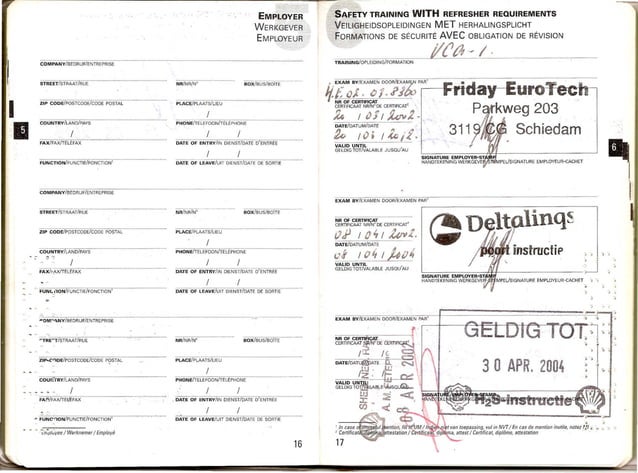 EMPLOYER
WERKGEVER
EMPLOYEUR
COMPANY/BEDRIJF/ENTREPRISE
STREET/STRAAT/RUE NR/NR/N° BOX/BUS/BOÎTE
ZIP CODE/POSTCODE/CODE POSTAL PLACE/PLAATS/LIEU
/ /
COUNTRY/LAND/PAYS PHONE/TELEFOON/TÉLÉPHONE
/ / /
FAX/FAX/TÉLÉFAX DATE OF ENTRY/IN DIENST/DATE D'ENTRÉE
/ /
FUNCTION/FUNCTIE/FONCTION DATE OF LEAVE/UIT DIENST/DATE DE SORTIE
5
COMPANY/BEDRIJF/ENTREPRISE
STREET/STRAAT/RUE NR/NR/N° BOX/BUS/BOÎTE
ZIP CODE/POSTCODE/CODE POSTAL PLACE/PLAATS/LIEU
/ /
COUNTRY/LAND/PAYS PHONE/TELEFOON/TÉLÉPHONE
/ / /
FAX/FAX/TÉLÉFAX DATE OF ENTRY/IN DIENST/DATE D'ENTRÉE
/ /
FUNCTION/FUNCTIE/FONCTION DATE OF LEAVE/UIT DIENST/DATE DE SORTIE
COMPANY/BEDRIJF/ENTREPRISE
STREET/STRAAT/RUE NR/NR/N° BOX/BUS/BOÎTE
ZIP CODE/POSTCODE/CODE POSTAL PLACE/PLAATS/LIEU
/ /
COUNTRY/LAND/PAYS PHONE/TELEFOON/TÉLÉPHONE
/ / /
FAX/FAX/TÉLÉFAX DATE OF ENTRY/IN DIENST/DATE D'ENTRÉE
/ /
FUNCTION/FUNCTIE/FONCTION DATE OF LEAVE/UIT DIENST/DATE DE SORTIE
Employee / Werknemer / Employé
16
SAFETY TRAINING WITH REFRESHER REQUIREMENTS
VEILIGHEIDSOPLEIDINGEN MET HERHALINGSPLICHT
FORMATIONS DE SÉCURITÉ AVEC OBLIGATION DE RÉVISION
VCA-1.
TRAINING/OPLEIDING/FORMATION
EXAM BY/EXAMEN DOOR/EXAMEN PAR
NR OF CERTIFICAT
CERTIFICAAT NR/N° DE CERTIFICAT
20 / 03 / 2002.
DATE/DATUM/DATE
20 / 03 / 2012.
VALID UNTIL
GELDIG TOT/VALABLE JUSQU'AU
Friday EuroTech
Parkweg 203
3119 CG Schiedam
SIGNATURE EMPLOYER-STAMP
HANDTEKENING WERKGEVER-STEMPEL/SIGNATURE EMPLOYEUR-CACHET
6
EXAM BY/EXAMEN DOOR/EXAMEN PAR
NR OF CERTIFICAT
CERTIFICAAT NR/N° DE CERTIFICAT
08 / 04 / 2002.
DATE/DATUM/DATE
08 / 04 / 2004
VALID UNTIL
GELDIG TOT/VALABLE JUSQU'AU
Deltalinqs
poort instructie
SIGNATURE EMPLOYER-STAMP
HANDTEKENING WERKGEVER-STEMPEL/SIGNATURE EMPLOYEUR-CACHET
EXAM BY/EXAMEN DOOR/EXAMEN PAR
NR OF CERTIFICAT
CERTIFICAAT NR/N° DE CERTIFICAT
DATE/DATUM/DATE
VALID UNTIL
GELDIG TOT/VALABLE JUSQU'AU
08 APR 2002
GELDIG TOT:
30 APR. 2004
H2S-instructie
SIGNATURE EMPLOYER-STAMP
17